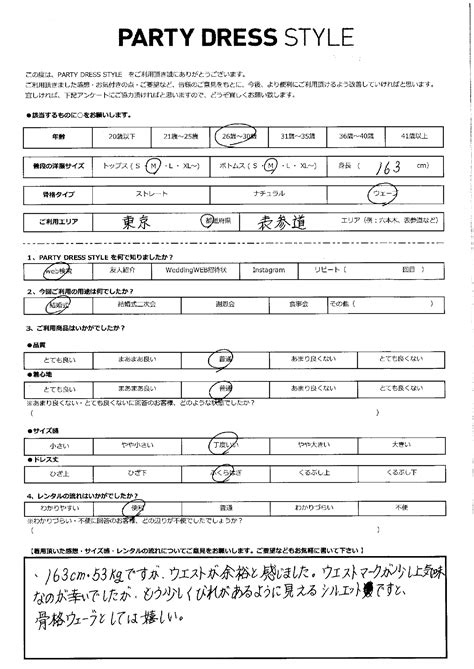 PARTY DRESS STYLE
この度は、PARTY DRESS STYLE をご利用頂き誠にありがとうございます。
ご利用頂きました感想・お気付きの点・ご要望など、皆様のご意見をもとに、今後、より便利にご利用頂けるよう改善していければと思います。
宜しければ、下記アンケートにご協力頂ければと思いますので、どうぞ宜しくお願い致します。
●該当するものに○をお願いします。
年齢 20歳以下 21歳～25歳 26歳～30歳 31歳～35歳 36歳～40歳 41歳以上
普段の洋服サイズ トップス ( S ・ M ・ L ・ XL～) ボトムス ( S ・ M ・ L ・ XL～) 身長 ( 163 cm)
骨格タイプ ストレート ナチュラル ウェーブ
ご利用エリア 東京 都道府県 表参道 エリア（例：六本木、表参道など）
1、PARTY DRESS STYLE を何で知りましたか？
web検索 友人紹介 WeddingWEB招待状 Instagram リピート ( 回目 )
2、今回ご利用の用途は何でしたか？
結婚式 結婚式二次会 謝恩会 食事会 その他 ( )
3、ご利用商品はいかがでしたか？
●品質
とても良い まあまあ良い 普通 あまり良くない とても良くない
●着心地
とても良い まあまあ良い 普通 あまり良くない とても良くない
※あまり良くない・とても良くないに回答のお客様、どのような状態でしたか？
( )
●サイズ感
小さい やや小さい 丁度いい やや大きい 大きい
●ドレス丈
ひざ上 ひざ下 ふくらはぎ くるぶし上 くるぶし下
4、レンタルの流れはいかがでしたか？
わかりやすい 便利 普通 わかりづらい 不便
※わかりづらい・不便に回答のお客様、どの辺りが不便でしたでしょうか？
( )
【着用頂いた感想・サイズ感・レンタルの流れについてご意見をお願いします。ご要望などもお気軽に書いて下さい 】
・163cm・53kgですが、ウエストが余裕と感じました。ウエストマークが少し上気味
なのが幸いでしたが、もう少しくびれがあるように見えるシルエットですと、
骨格ウェーブとしては嬉しい。